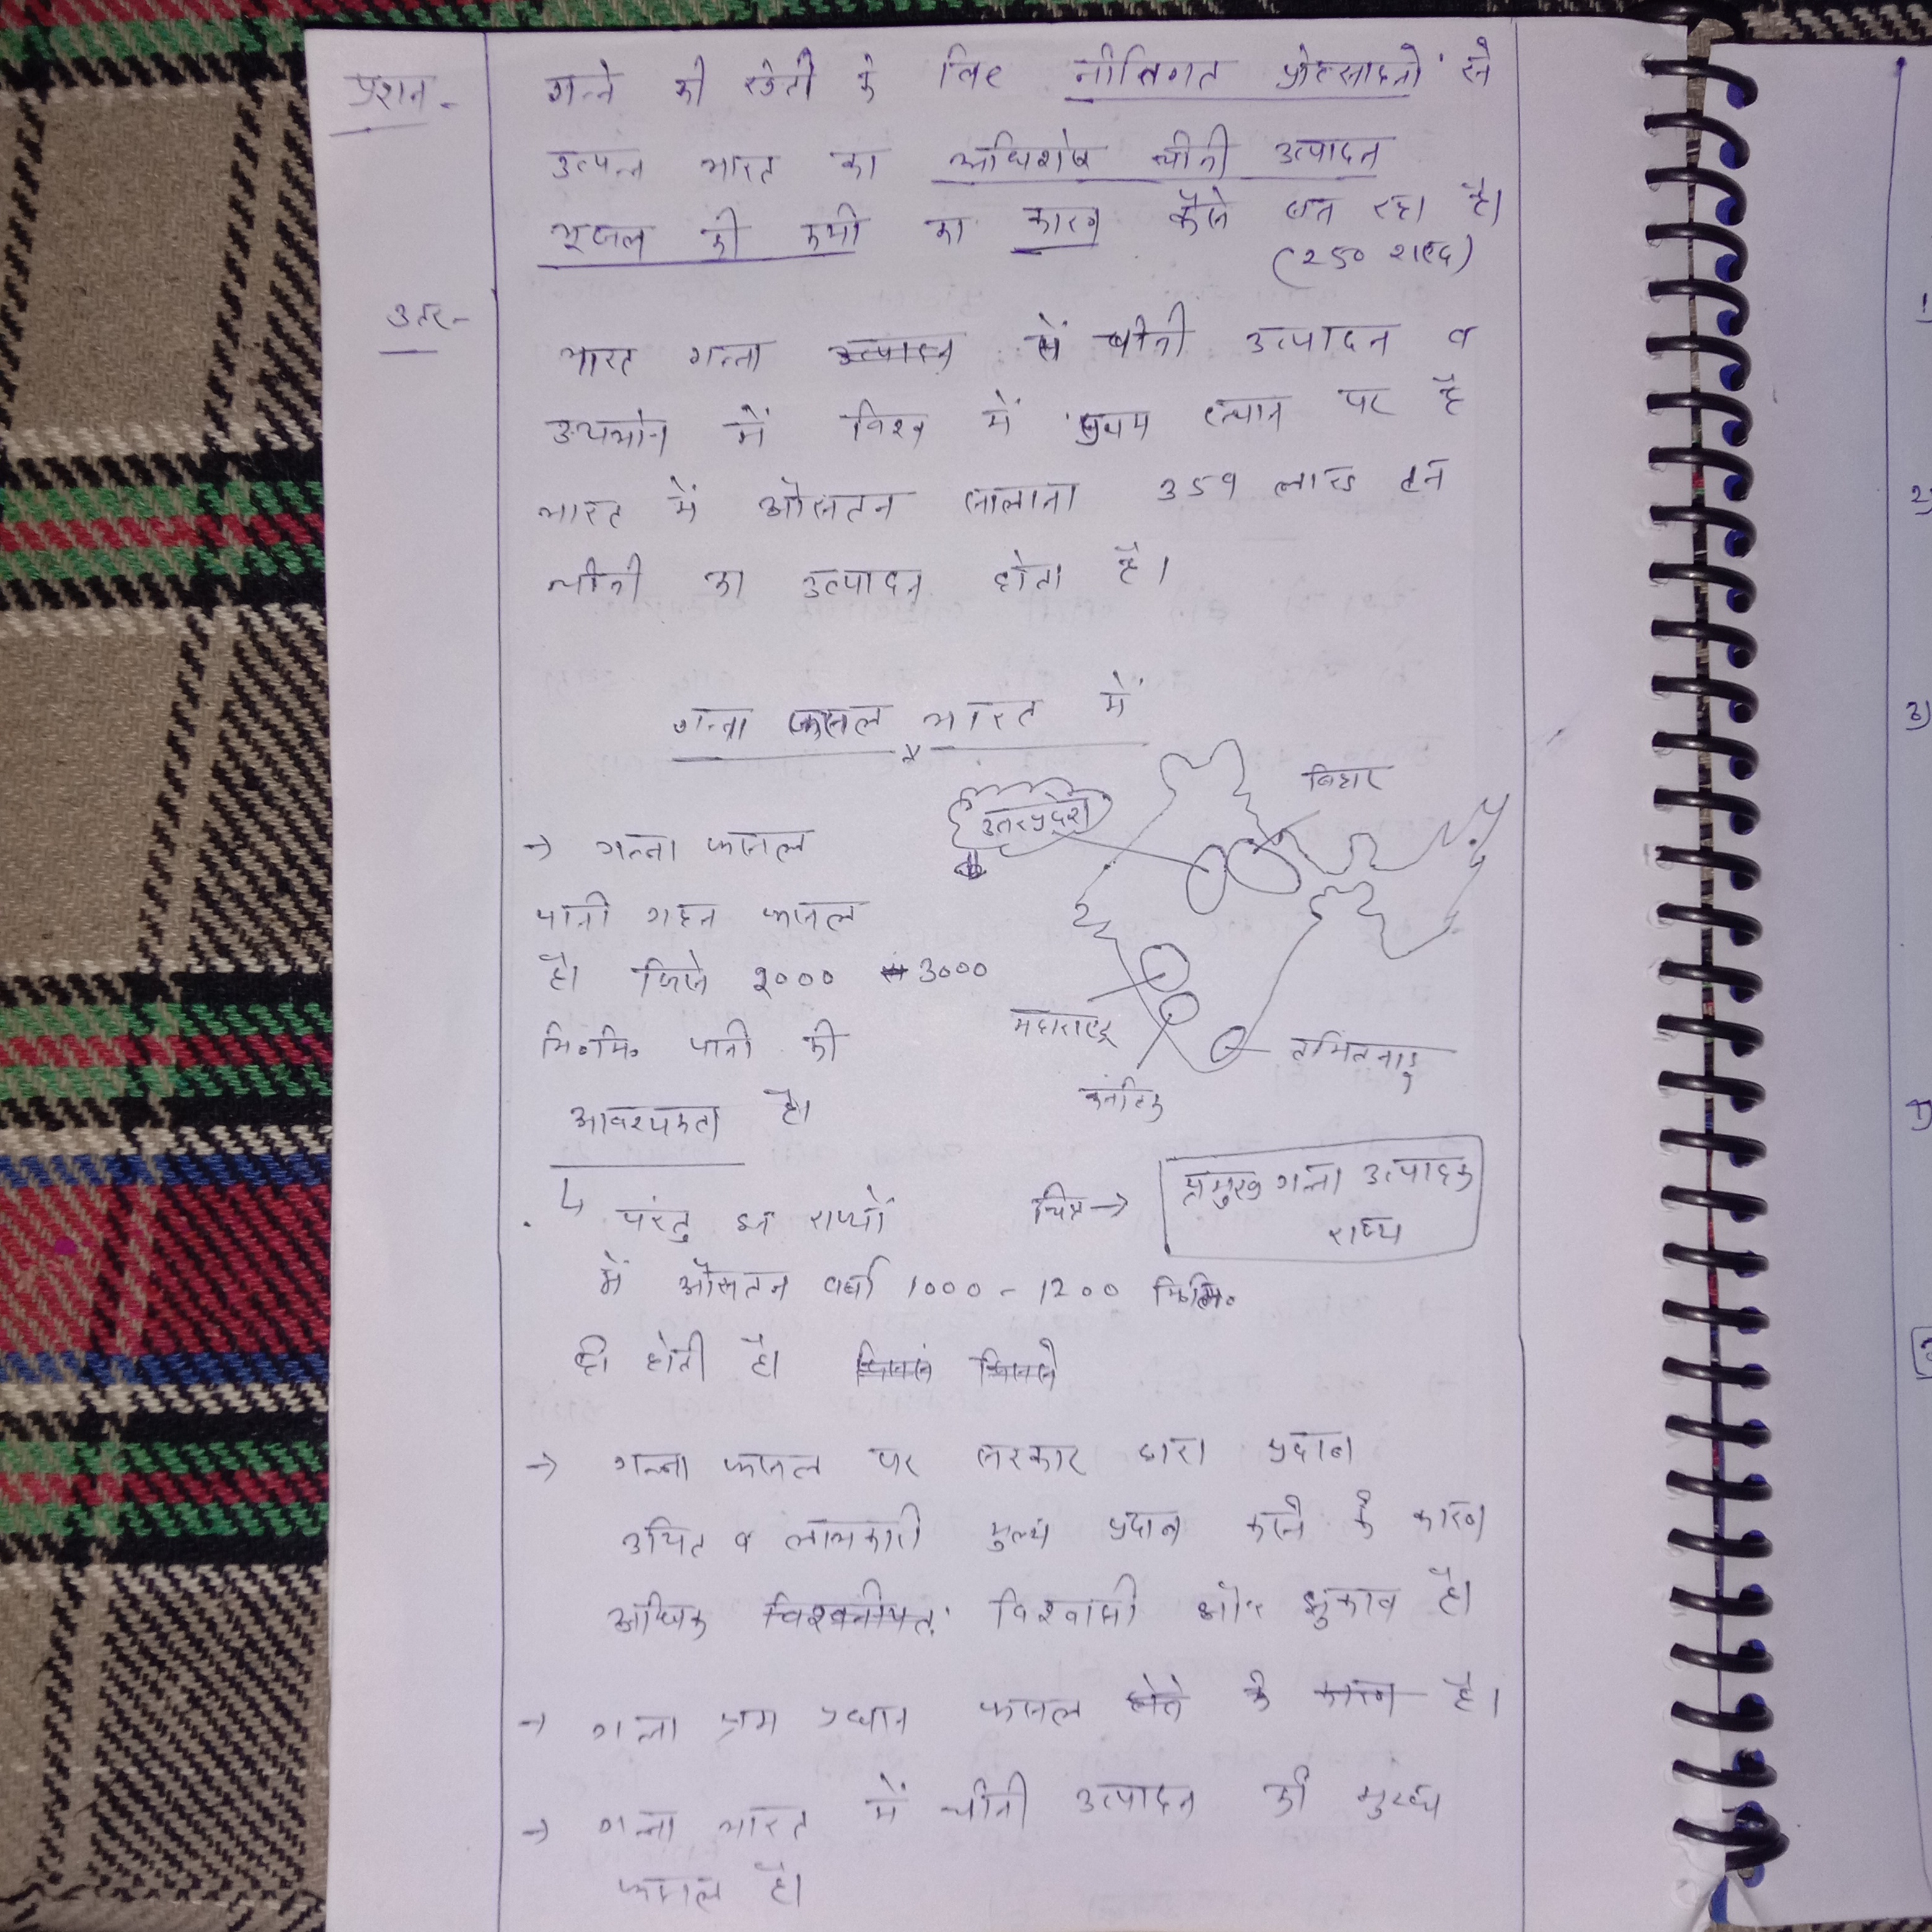 प्रशन- गन्ने की खेती के लिए नीतिगत प्रोत्साहनों से
उत्पन्न भारत का अधिशेष चीनी उत्पादन
भूजल की कमी का कारण कैसे बन रहा है।
(250 शब्द)
उतर- भारत गन्ना उत्पादन से चीनी उत्पादन व
उपभोग में विश्व में प्रथम स्थान पर है
भारत में औसतन सालाना 359 लाख टन
चीनी का उत्पादन होता है।
गन्ना फसल भारत में
उतरप्रदेश
बिहार
→ गन्ना फसल
पानी गहन फसल
है। जिसे 2000 3000
मि०मि० पानी की
आवश्यकता है।
महाराष्ट्र
कर्नाटक
तमिलनाडु
चित्र → प्रमुख गन्ना उत्पादक
राज्य
↳ परंतु इन राज्यों
में औसतन वर्षा 1000 - 1200 मि०मि०
ही होती है।
→ गन्ना फसल पर सरकार द्वारा प्रदान
उचित व लाभकारी मुल्य प्रदान करने के कारण
अधिक विश्वासी और झुकाव है।
→ गन्ना श्रम प्रधान फसल होने के कारण है।
→ गन्ना भारत में चीनी उत्पादन की मुख्य
फसल है।
1)
2)
3)